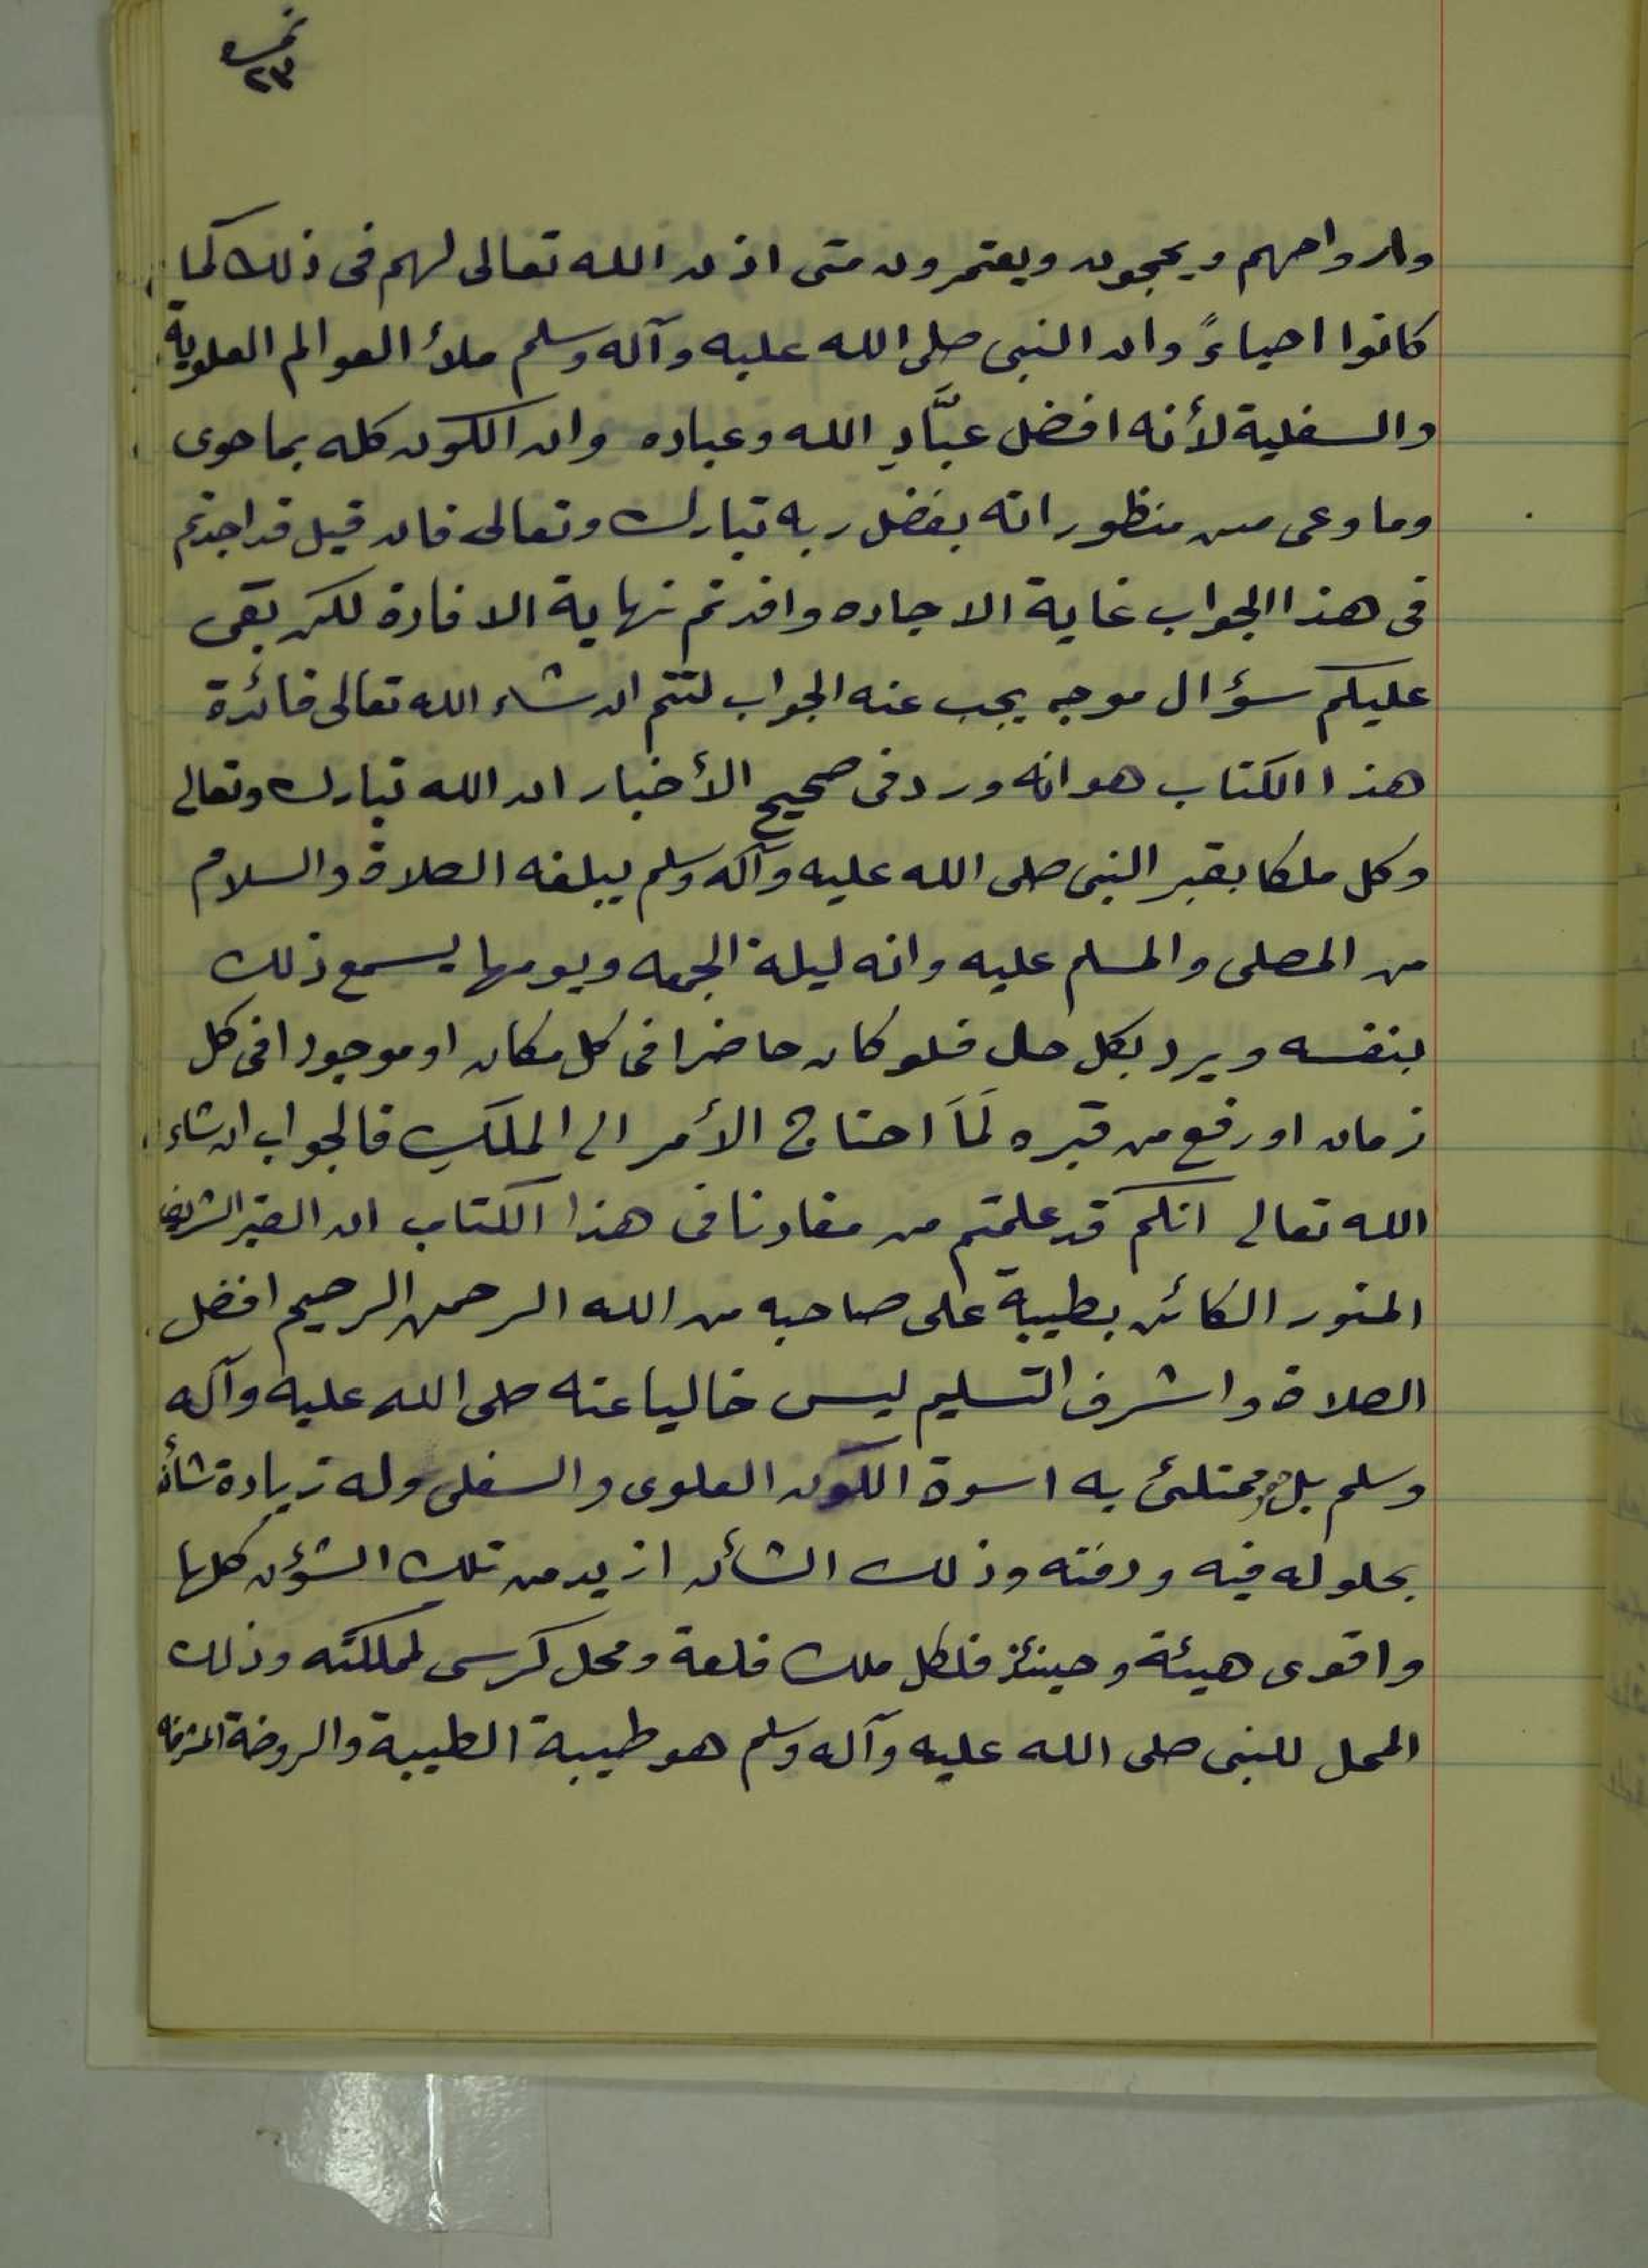 نمرة
٢٣
ولارواحهم ويحجون ويعتمرون متى اذن الله تعالى لهم فى ذلك كما
كانوا احياءً وان النبى صلى الله عليه وآله وسلم ملأ العوالم العلوية
والسفلية لأنه افضل عبَّادِ الله وعباده وان الكون كله بما حوى
وما وعى من منظوراته بفضل ربه تبارك وتعالى فان قيل قد اجدتم
فى هذا الجواب غاية الاجاده وافدتم نهاية الافادة لكن بقى
عليكم سؤال موجه يجب عنه الجواب لتتم ان شاء الله تعالى فائدة
هذا الكتاب هو انه ورد فى صحيح الأخبار ان الله تبارك وتعالى
وكل ملكا بقبر النبى صلى الله عليه وآله وسلم يبلغه الصلاة والسلام
من المصلى والمسلم عليه وانه ليلة الجمعه ويومها يسمع ذلك
بنفسه ويرد بكل حال فلو كان حاضرا فى كل مكان او موجودا فى كل
زمان او رفع من قبره لَمَا احتاج الأمر الى الملَكِ فالجواب ان شاء
الله تعالى انكم قد علمتم من مفادنا فى هذا الكتاب ان القبر الشريف
المنور الكائن بطيبة على صاحبه من الله الرحمن الرحيم افضل
الصلاة واشرف التسليم ليس خاليا عنه صلى الله عليه وآله
وسلم بل هو ممتلئ به اسوة الكون العلوى والسفلى وله زيادة شأن
بحلوله فيه ودفنه وذلك الشأن ازيد من تلك الشؤن كلها
واقوى هيئة وحينئذ فلكل ملك قلعة ومحل كرسى لمملكته وذلك
المحل للنبى صلى الله عليه وآله وسلم هو طيبة الطيبة والروضة المشرفه